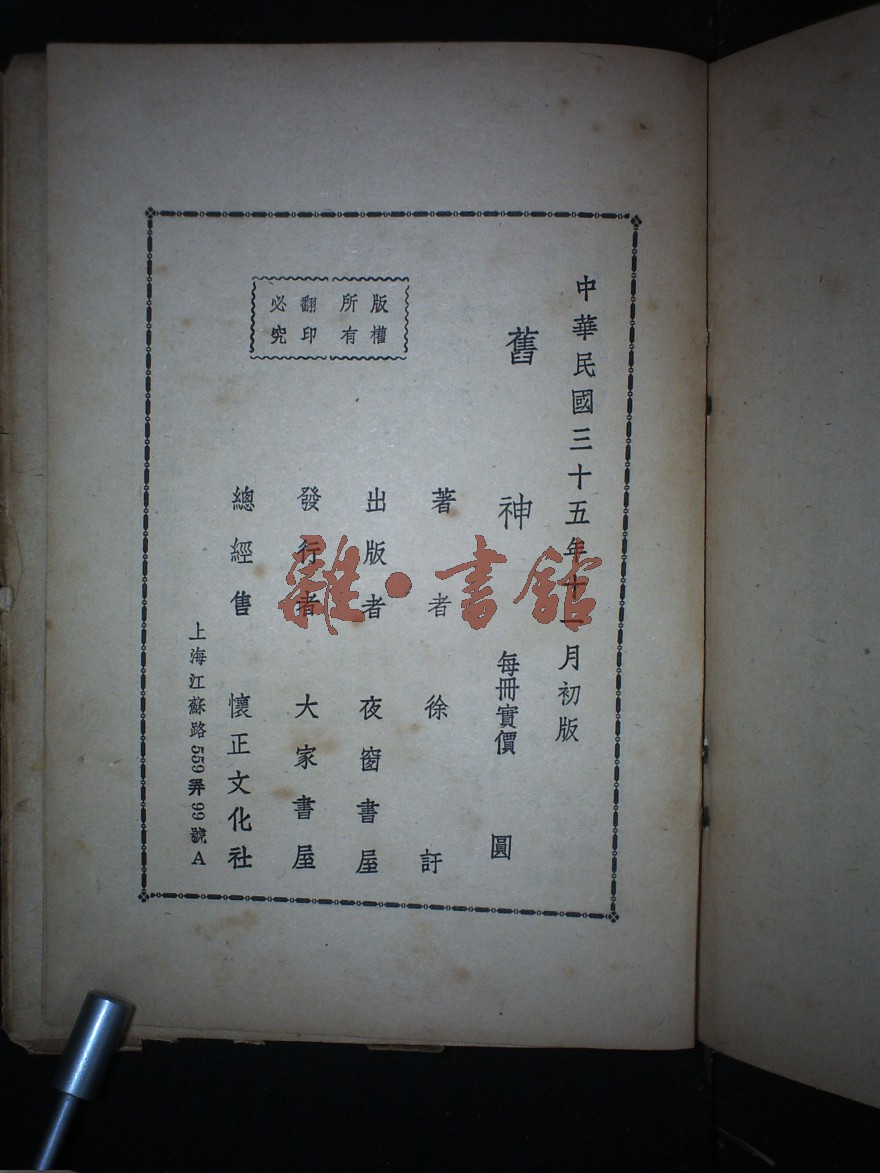 中華民國三十五年十一月初版
舊神 每冊實價 圓
著者 徐訏
出版者 夜窗書屋
發行者 大家書屋
總經售 懷正文化社
上海江蘇路559弄99號A
版權
所有
翻印
必究
雜·書館